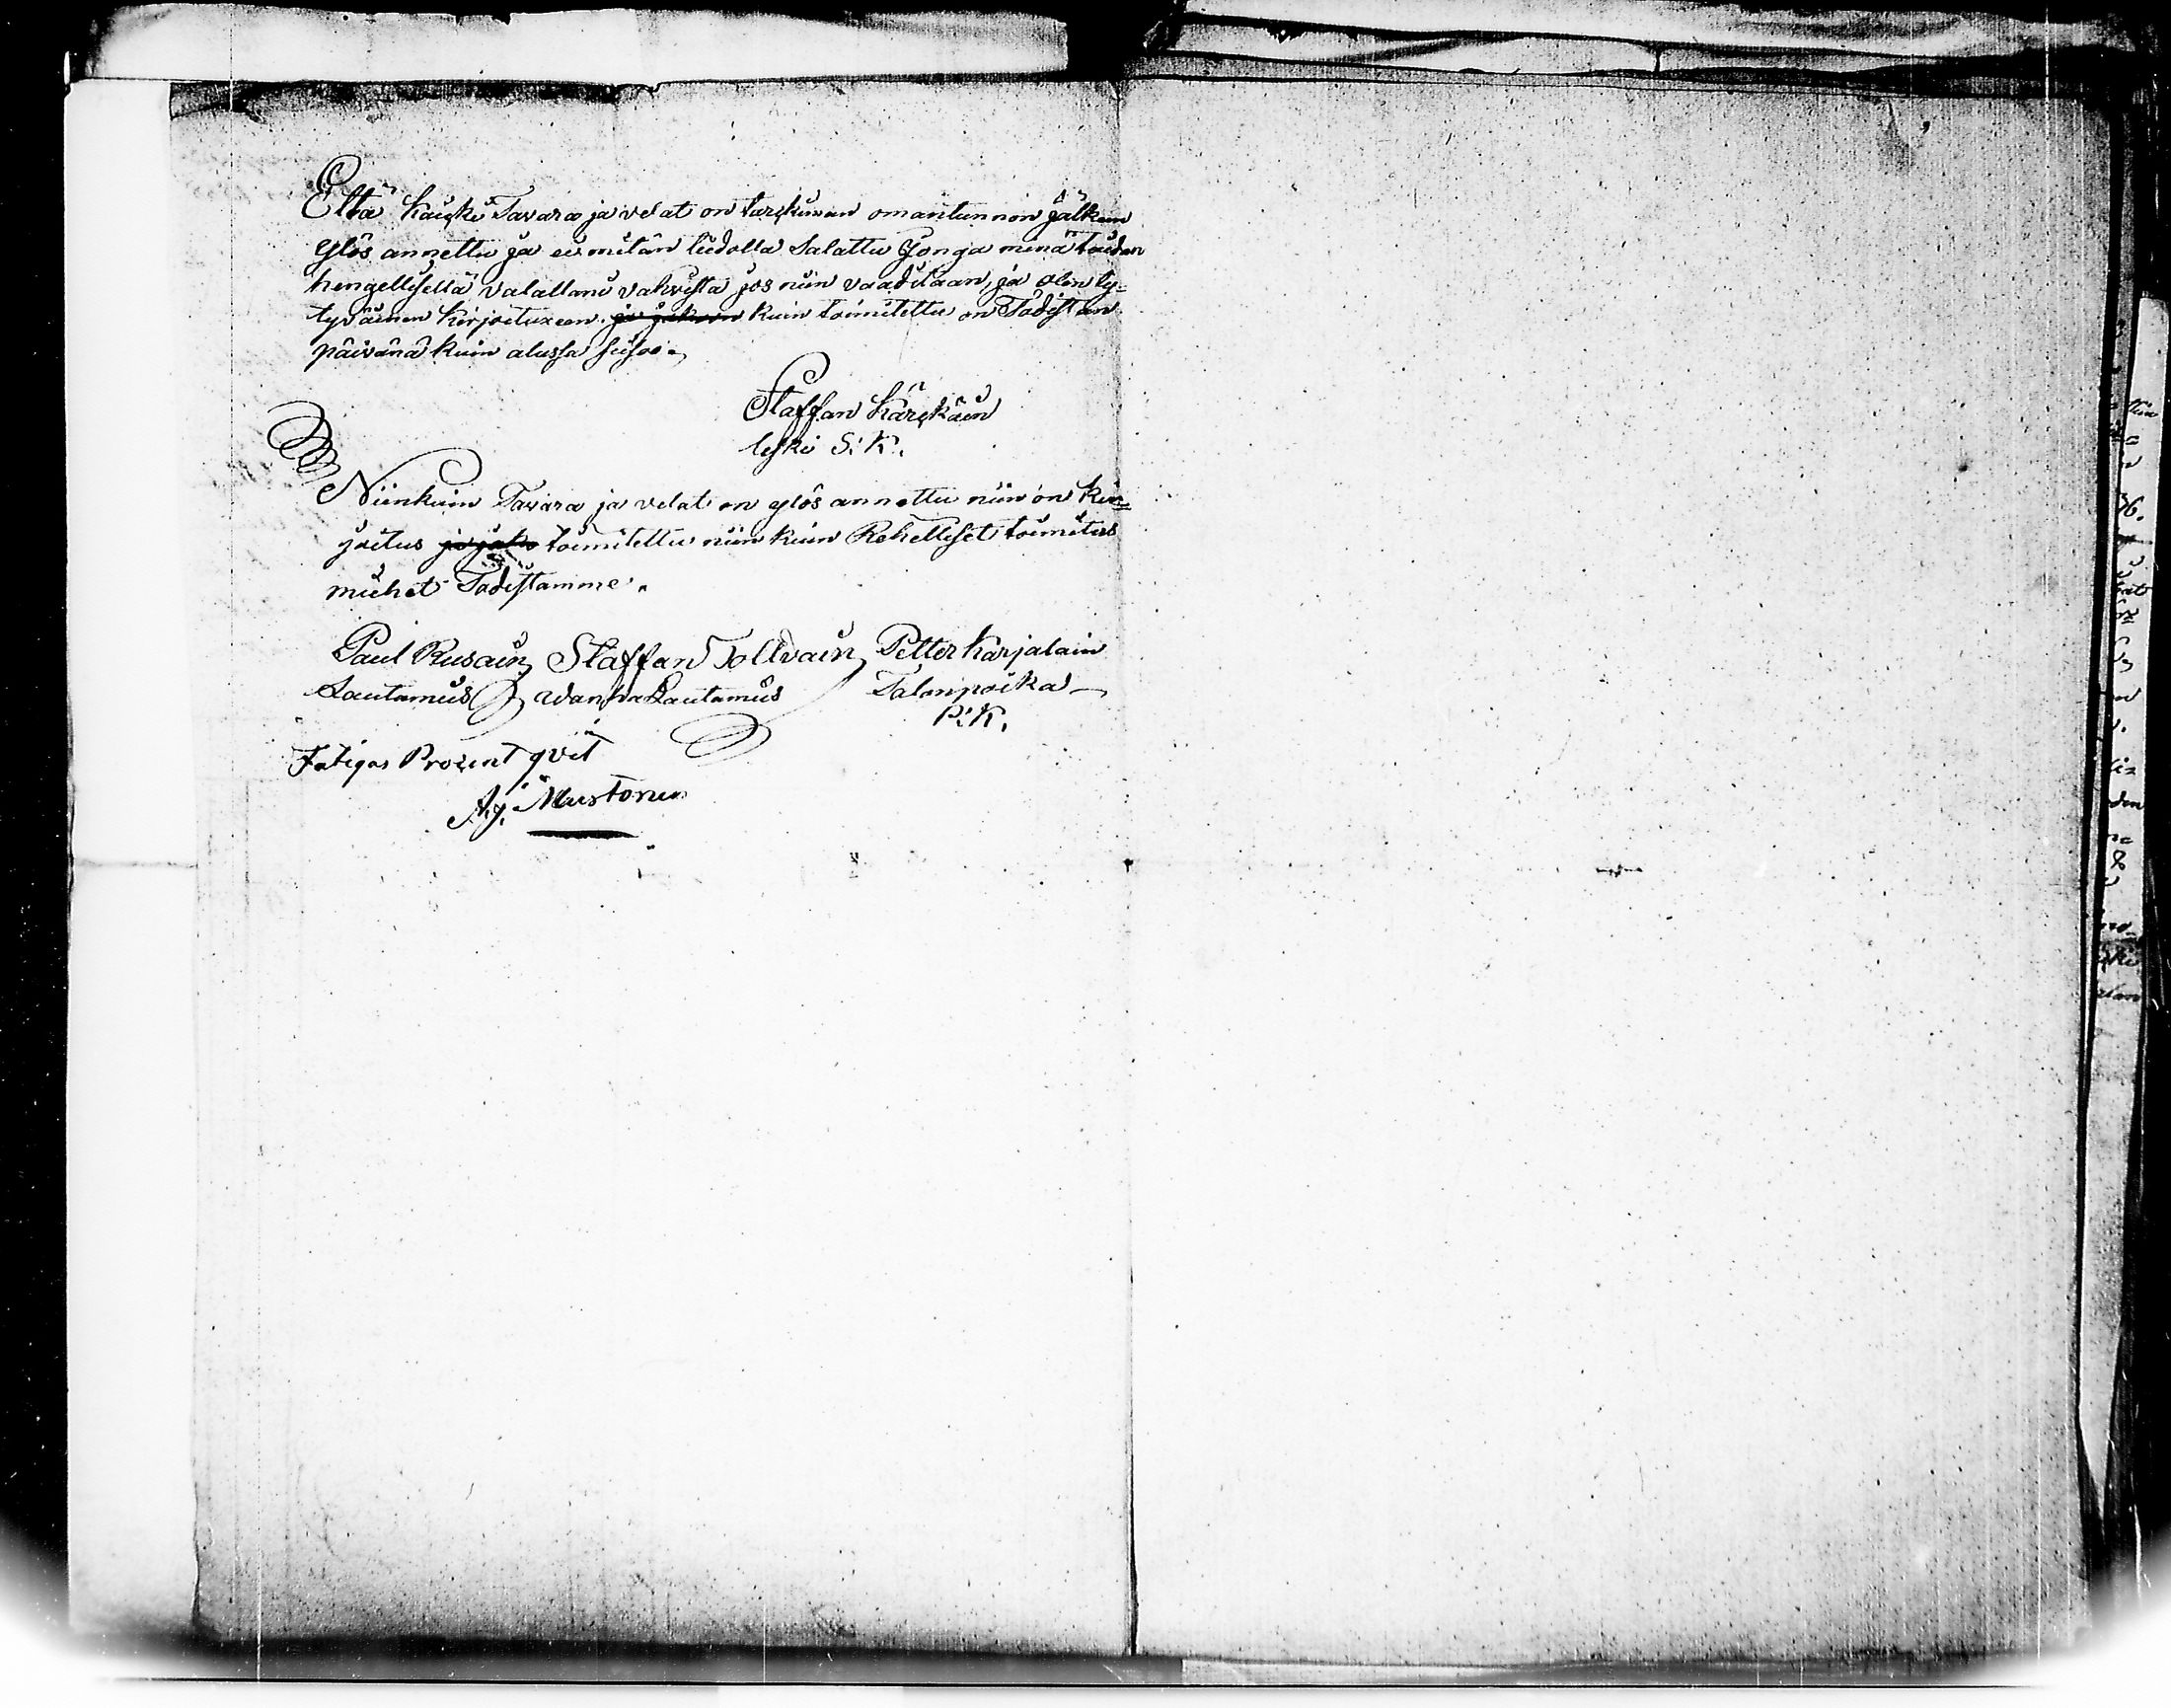 Että kaicki Tavara ja velat on tarckimman omantunnon jälkeen
ylös annettu ja ei mitän tiedolla Salattu Jonga minä taidan
hengellisellä valallani vahvista jos niin vaaditaan, ja olen ty=
tyväinen kirjoituxeen ja jakoon kuin toimitettu on Todistan
päivänä kuin alussa seisoo.
Staffan Kärckäin
leski S: K.
Niinkuin Tavara ja velat on ylös annettu niin on kir=
joitus ja jako toimitettu niin kuin Rehelliset toimitus
miehet Todistamme.
Paul Rusain Staffan Tollvain Petter Karjalain
Lautamies wanha Lautamies Talonpoika
P: K.
Fatigas Prozent qvit
Aj. Mustonen